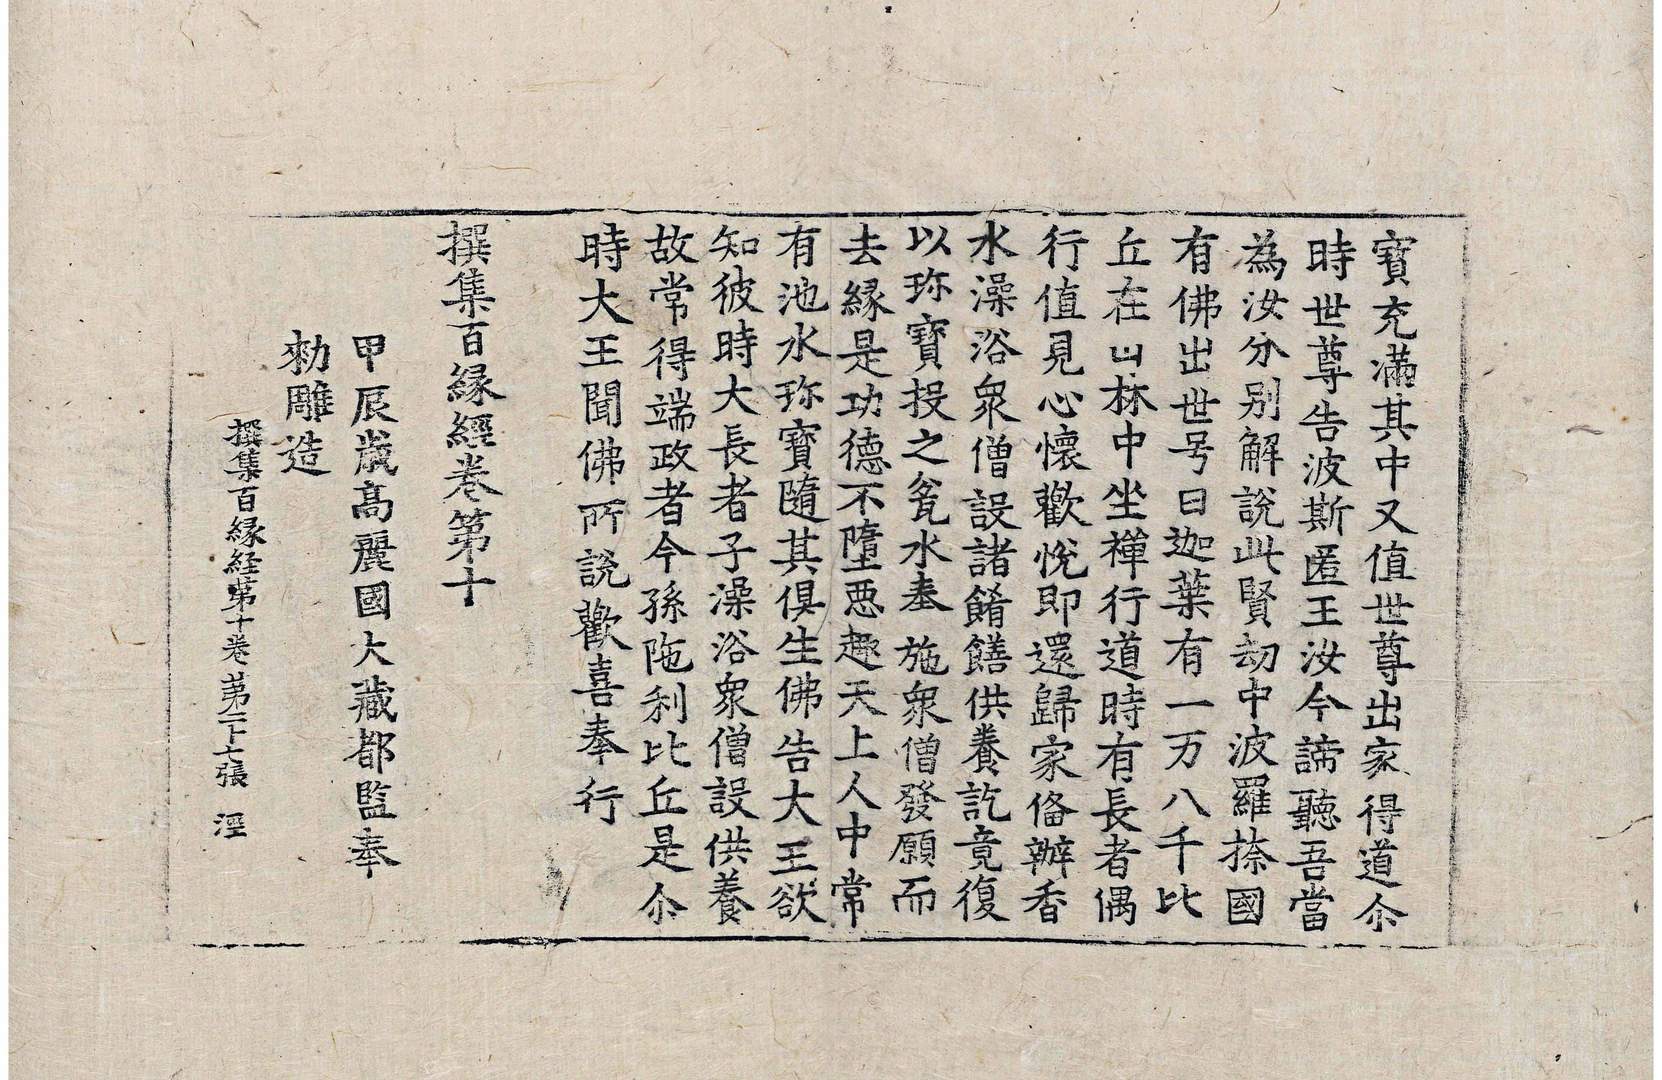 寶充滿其中又值世尊出家得道尒
時世尊告波斯匿王汝今諦聽吾當
為汝分别解說此賢劫中波羅捺國
有佛出世号曰迦葉有一万八千比
丘在山林中坐禪行道時有長者偶
行值見心懷歡悅即還歸家俻辦香
水澡浴衆僧設諸餚饍供養訖竟復
以珎寶投之瓮水奉施衆僧發願而
去縁是功德不墮惡趣天上人中常
有池水珎寶隨其俱生佛告大王欲
知彼時大長者子澡浴衆僧設供養
故常得端政者今孫陁利比丘是尒
時大王聞佛所說歡喜奉行
撰集百縁經卷第十
甲辰歲高麗國大藏都監奉
勑雕造
撰集百縁経第十卷 第二十七張 涇